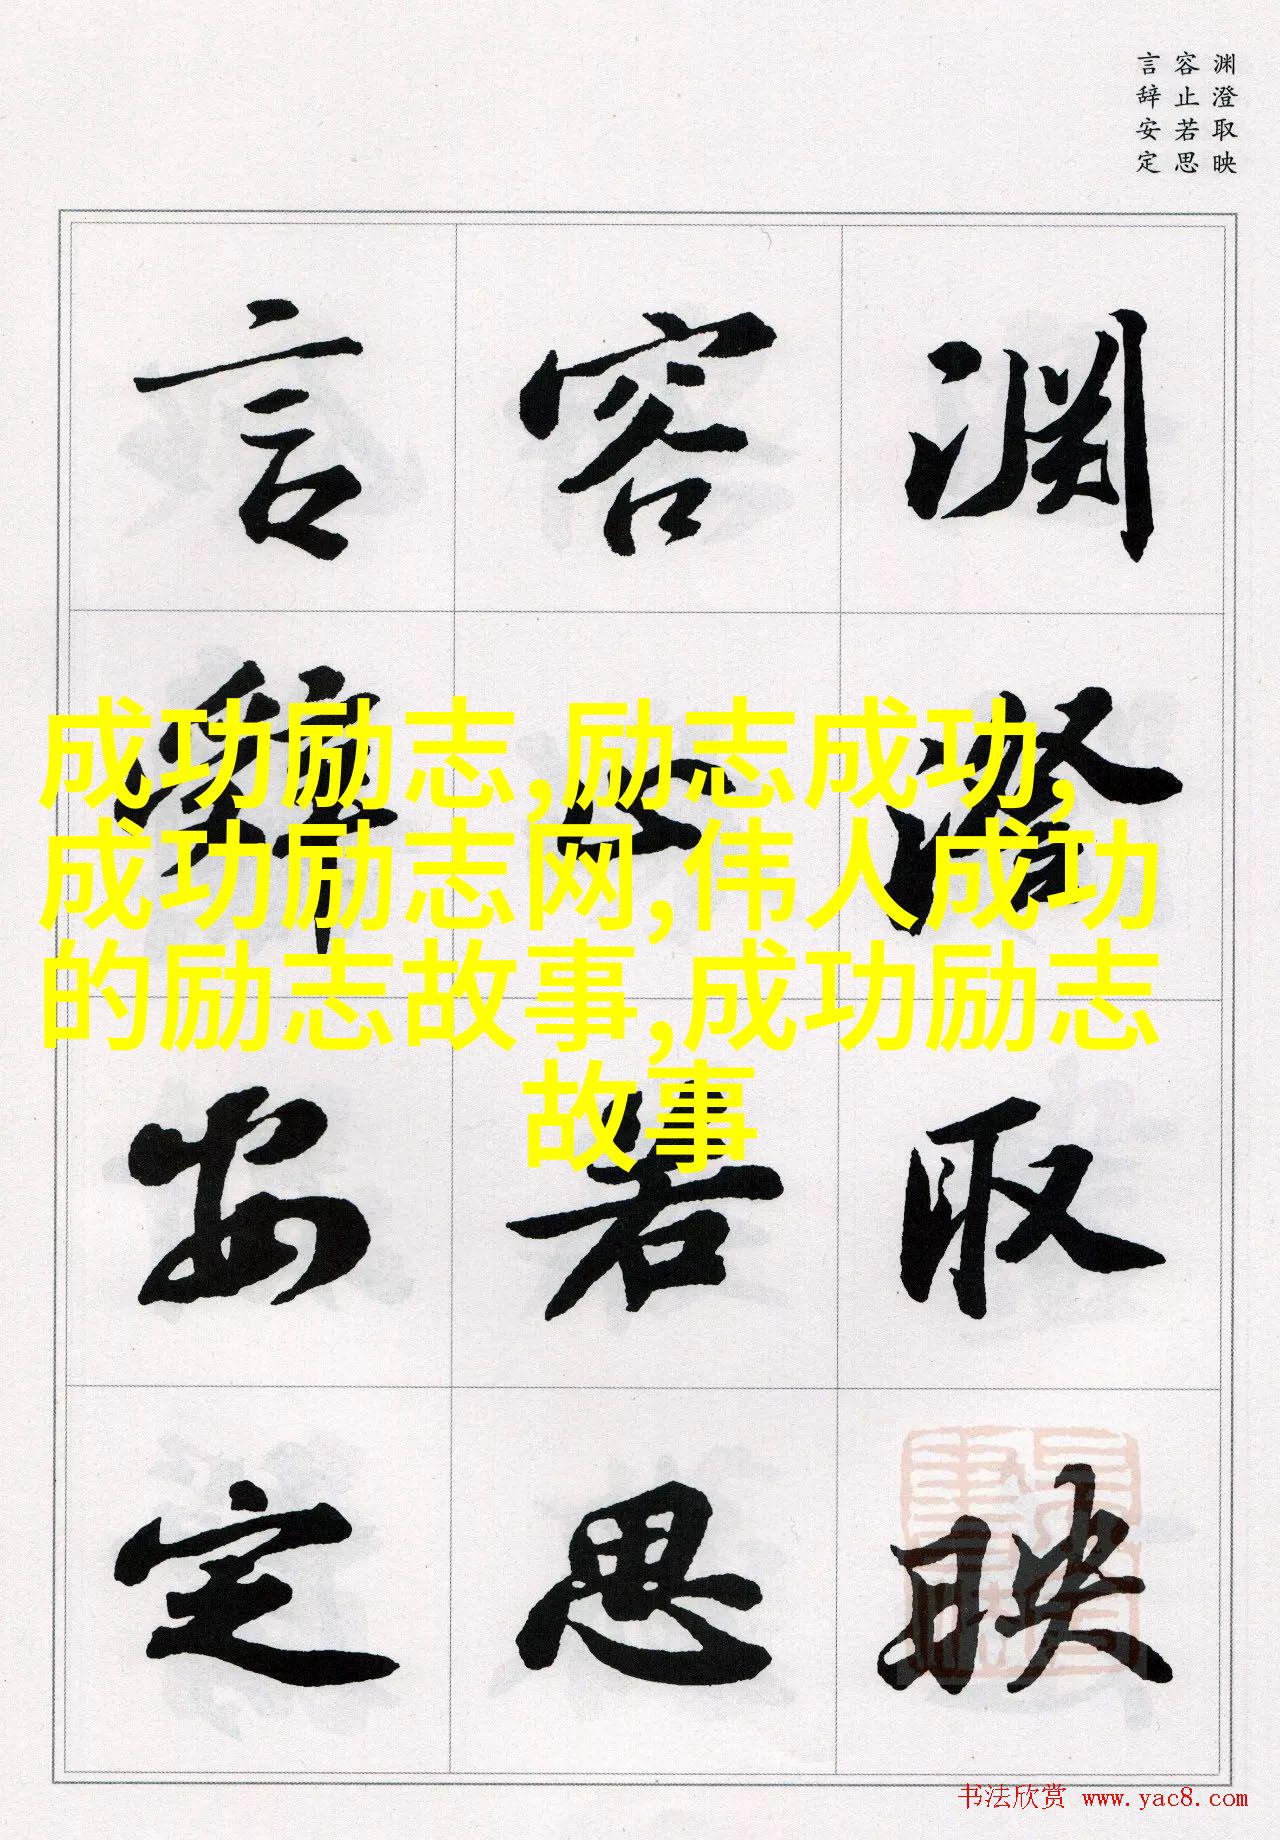 渊澄取映
容止若思
言辞安定
渊澄取映
容止若思
言辞安定
成功励志,励志成功,
成功励志网,伟人成功
的励志故事,成功励志
故事
书法欣赏 www.yac8.com